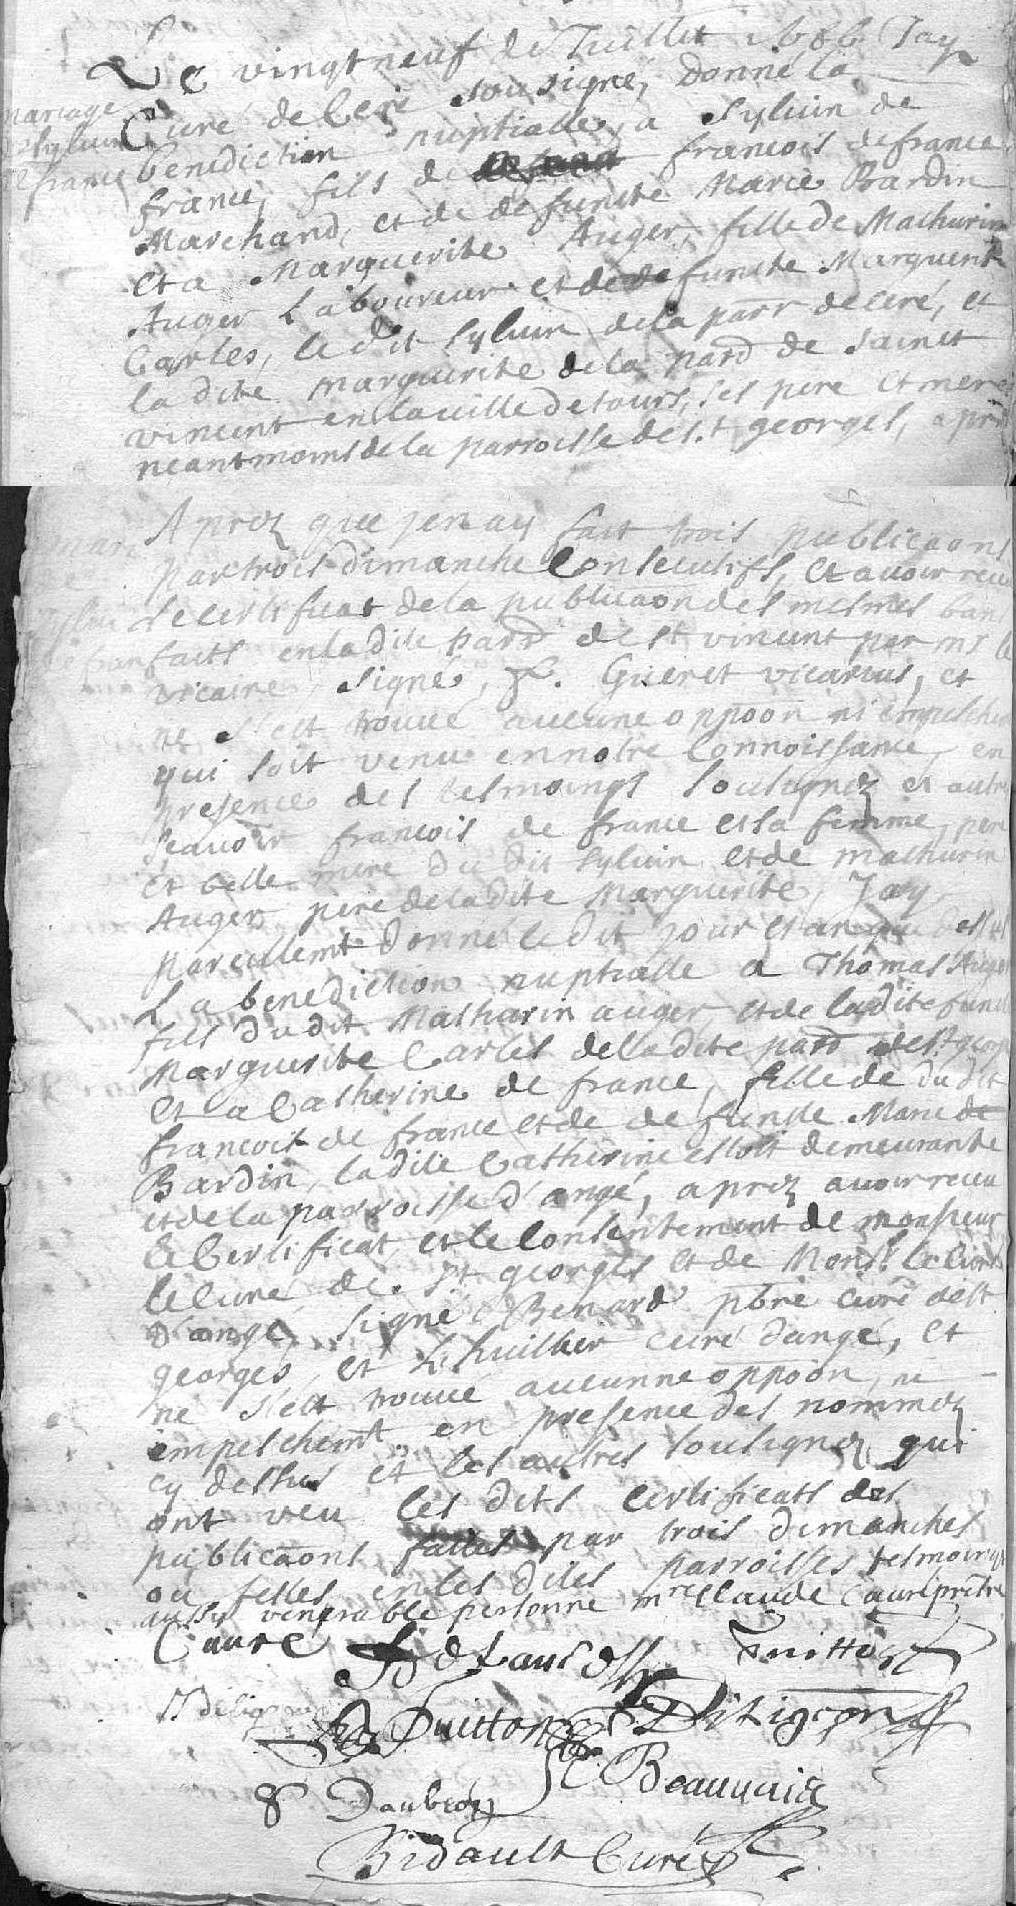 Le vingtneuf de Juillet 1686 Jay
mariage
Curé de Ceré soussigné, donné la
Sylvin
benediction nuptialle, a Sylvin de
de france
france, fils de francois de france
Marchand, et de defuncte Marie Bardin
et a Marguerite Auger, fille de Mathurin
Auger Laboureur et de defuncte Marguerite
Carles, le dit Sylvin de la parr de Ceré, et
la dite Marguerite de la parr de sainct
vincent en la ville de tours, ses pere et mere
neantmoins de la parroisse de St georges, apres
Aprez que jen ay fait trois publicaons
par trois dimanche consecutifs, et avoir receu
le certificat de la publicaon des mesmes bans
faits en la dite parr de st vincent par mr le
vicaire, signé, Gueret vicarius, et
ne s'est trouvé aucune oppoon ni empeschem
qui soit venu en notre connoissance, en
presence des tesmoings soulsignez et autres
scavoir francois de france et sa femme, pere
et belle mere du dit Sylvin et de mathurin
Auger pere de la dite Marguerite, Jay
pareillemt donné le dit jour et an que dessus
La benediction nuptialle a Thomas Auger
fils du dit Mathurin auger, et de la dite functe
Marguerite Carles de la dite parr de St georges
et a Catherine de france, fille de du dit
francois de france et de defuncte Marie de
Bardin, la dite Catherine estoit demeurante
et de la parroisse d'angé, aprez avoir receu
le Certificat, et le consentement de monsieur
le Curé de St georges et de Monsr le Curé
d'angé, signé Benard pbre curé de St
georges, et Lhuillier curé d'angé, et
ne s'est trouvé aucunne oppoon, ni
empeschemt en presence des nommez
cy dessus et les autres soulsignez qui
ont veu les dits certificats des
publicaons faites par trois dimanches
ou festes en les dites parroisses tesmoings
aussy venerable personne mre Claude Cauré prêtre
Cauré
Guitton
Deligeon
Guitton
Beauvais
Daubron
Bidault Curé